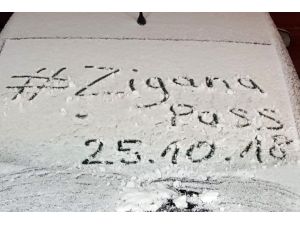 #Zigana
Pass
25.10.18